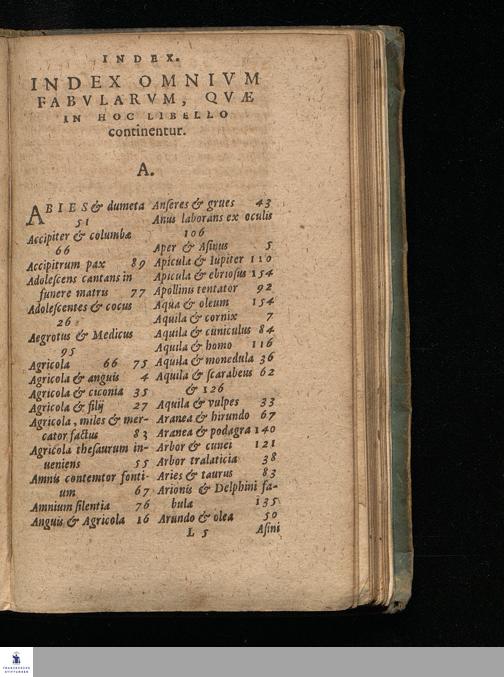 INDEX.
INDEX OMNIVM
FABVLARVM, QVÆ
IN HOC LIBELLO
continentur.
A.
ABIES & dumeta
51
Accipiter & columbæ
66
Accipitrum pax 89
Adolescens cantans in
funere matris 77
Adolescentes & cocus
26
Aegrotus & Medicus
95
Agricola 66 75
Agricola & anguis 4
Agricola & ciconia 35
Agricola & filij 27
Agricola, miles & mer-
cator factus 83
Agricola thesaurum in-
ueniens 55
Amnis contemtor fonti-
um 67
Amnium silentia 76
Anguis & Agricola 16
Anseres & grues 43
Anus laborans ex oculis
106
Aper & Asinus 5
Apicula & Iupiter 110
Apicula & ebriosus 154
Apollinis tentator 92
Aqua & oleum 154
Aquila & cornix 7
Aquila & cuniculus 84
Aquila & homo 116
Aquila & monedula 36
Aquila & scarabeus 62
& 126
Aquila & vulpes 33
Aranea & hirundo 67
Aranea & podagra 140
Arbor & cunei 121
Arbor tralaticia 38
Aries & taurus 83
Arionis & Delphini fa-
bula 135
Arundo & olea 50
L 5 Asini
FRANCKESCHE
STIFTUNGEN